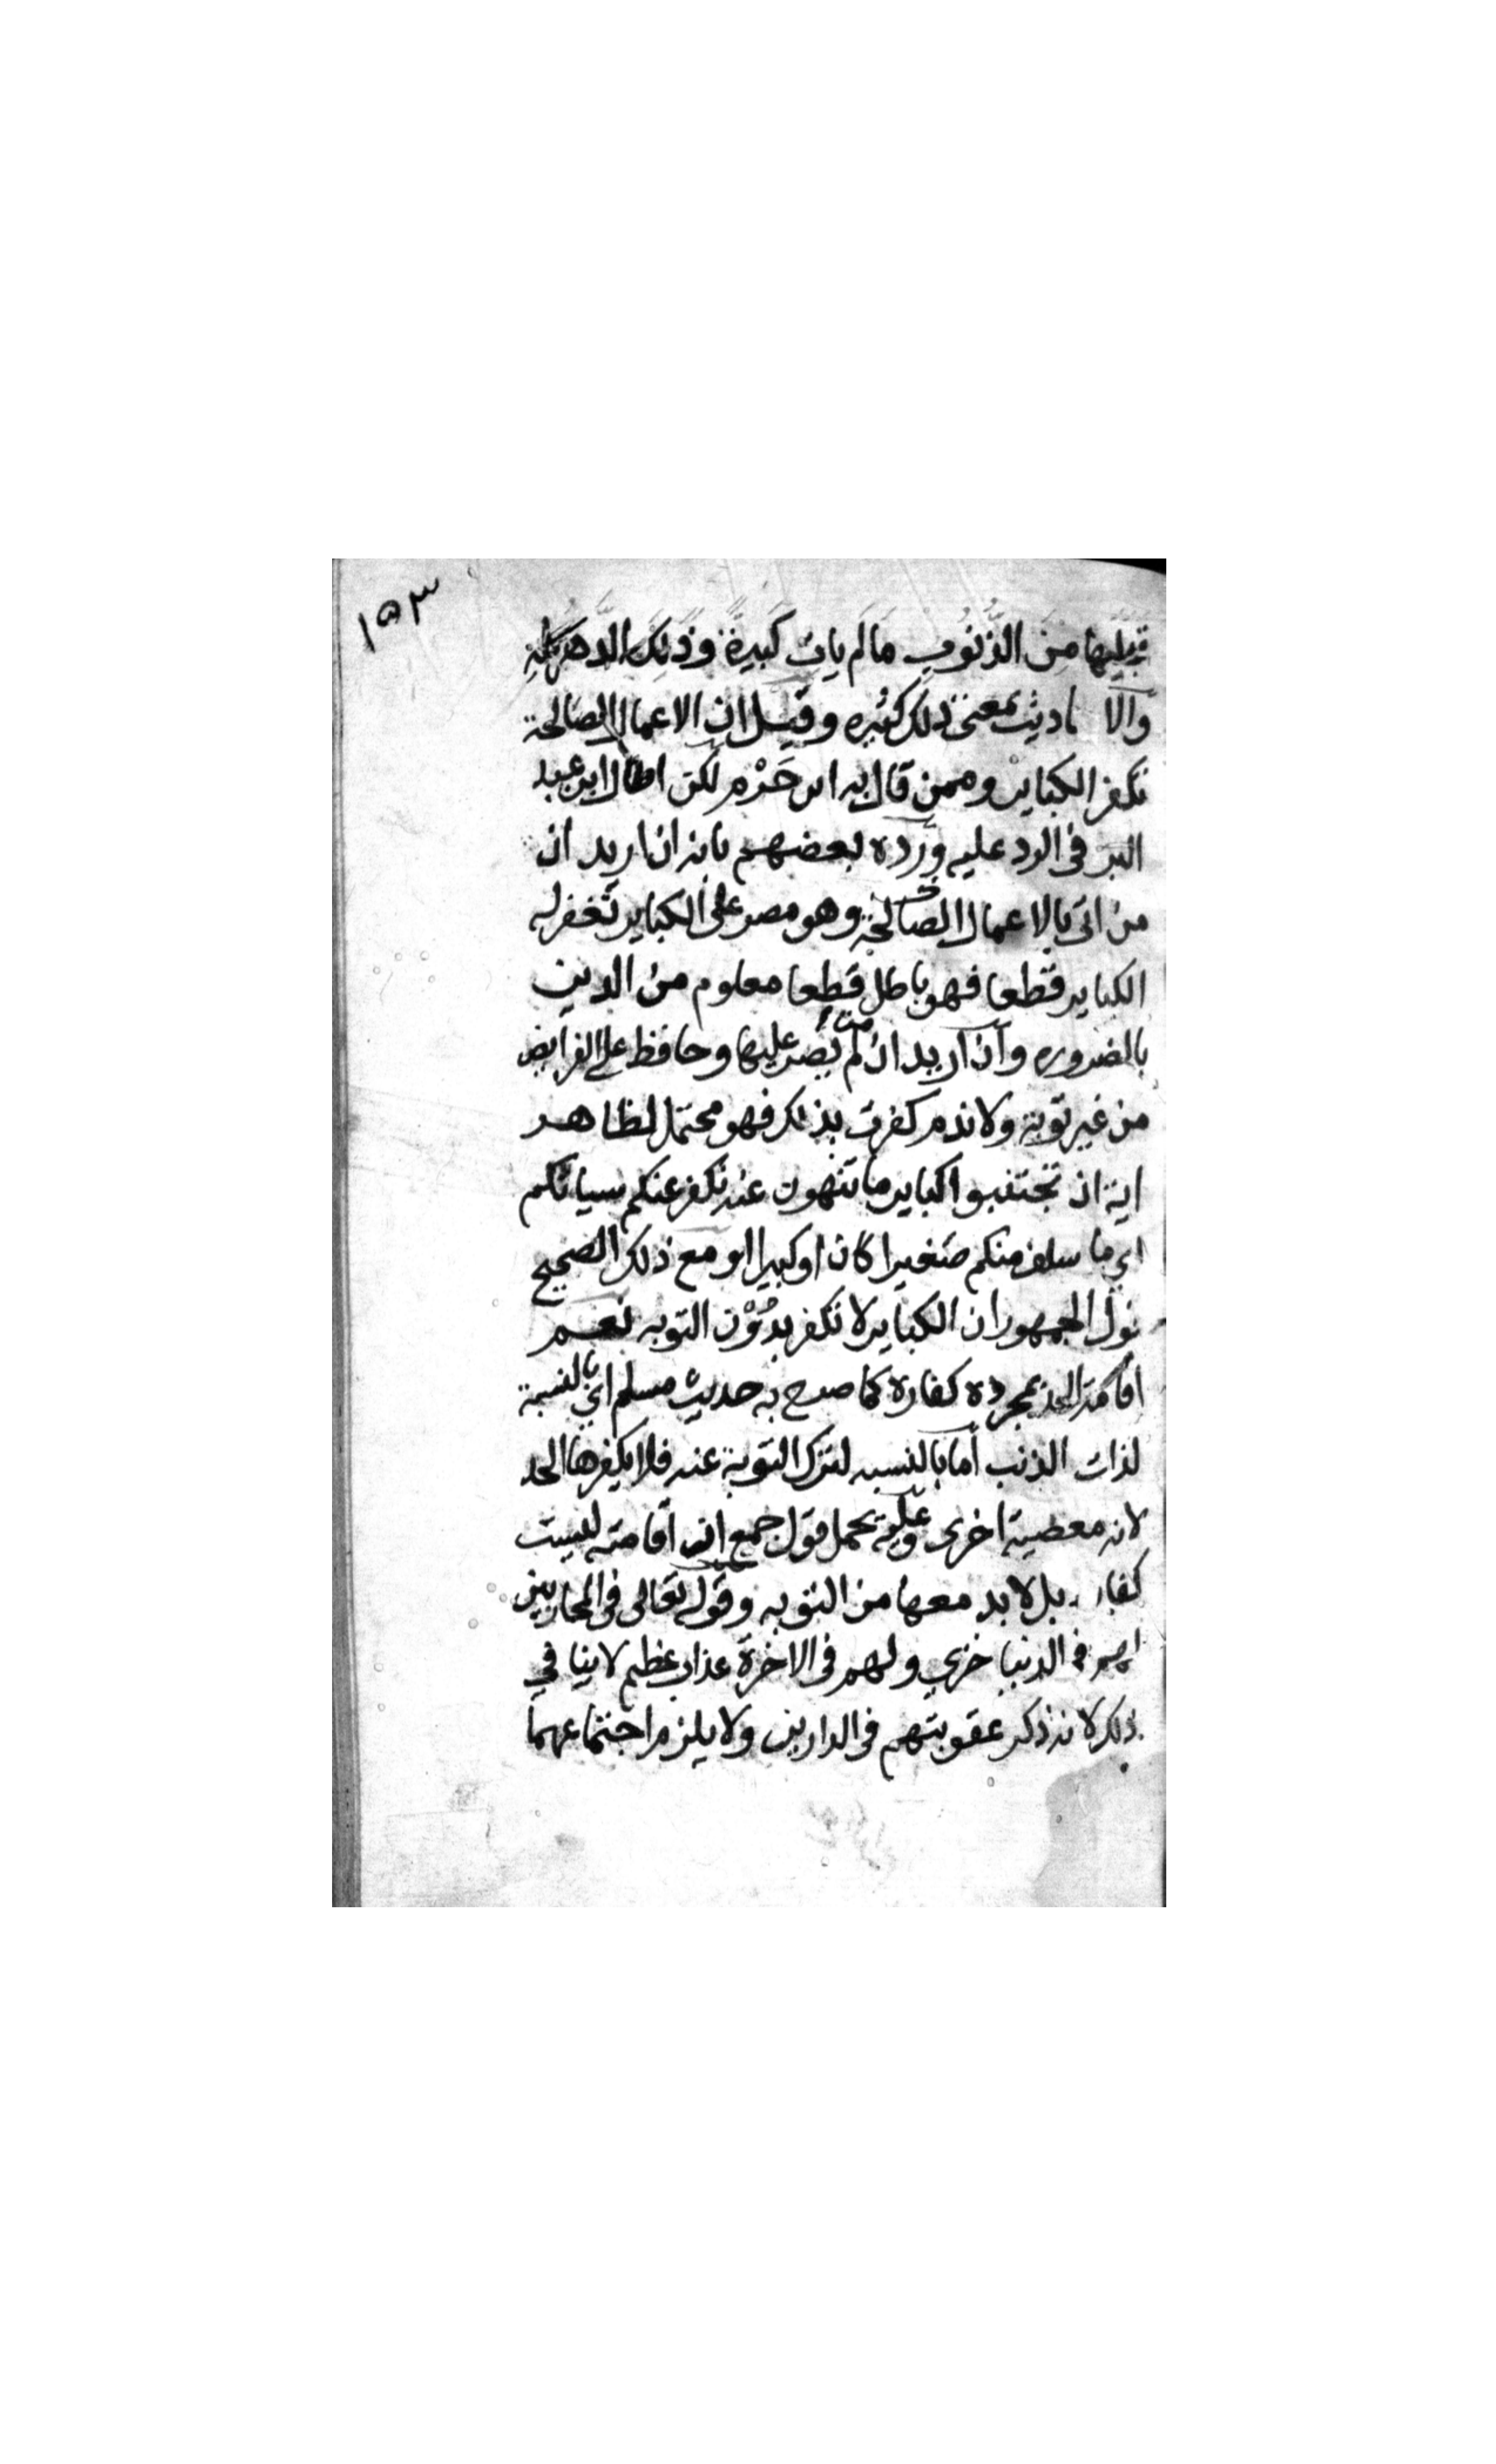 ١٥٣
قبلها من الذنوب ما لم يات كبيرة وذلك الدهر كله
والاحاديث بمعنى ذلك كثيره وقيل ان الاعمال الصالحة
تكفر الكباير وممن قال به ابن حزم لكن اطال ابن عبد
البر في الرد عليه ورده بعضهم بانه ان اريد ان
من اتى بالاعمال الصالحة وهو مصر على الكباير تغفر له
الكباير قطعا فهو باطل قطعا معلوم من الدين
بالضروره وان اريد ان من لم يصر عليها وحافظ على الفرايض
من غير توبة ولا ندم كفرت بذلك فهو محتمل لظاهر
اية ان تجتنبوا كباير ما تنهون عنه نكفر عنكم سياتكم
اي ما سلف منكم صغيرا كان او كبيرا ومع ذلك الصحيح
قول الجمهور ان الكباير لا تكفر بدون التوبه نعم
اقامة الحد بمجرده كفارة كما صرح به حديث مسلم اي بالنسبة
لذات الذنب اما بالنسبه لترك التوبة عنه فلا يكفرها الحد
لانه معصية اخرى وعليه يحمل قول جمع ان اقامته ليست
كفارة بل لا بد معها من التوبه وقوله تعالى في المحاربين
لهم في الدنيا خزي ولهم في الاخرة عذاب عظيم لا ينافي
ذلك لانه ذكر عقوبتهم في الدارين ولا يلزم اجتماعهما